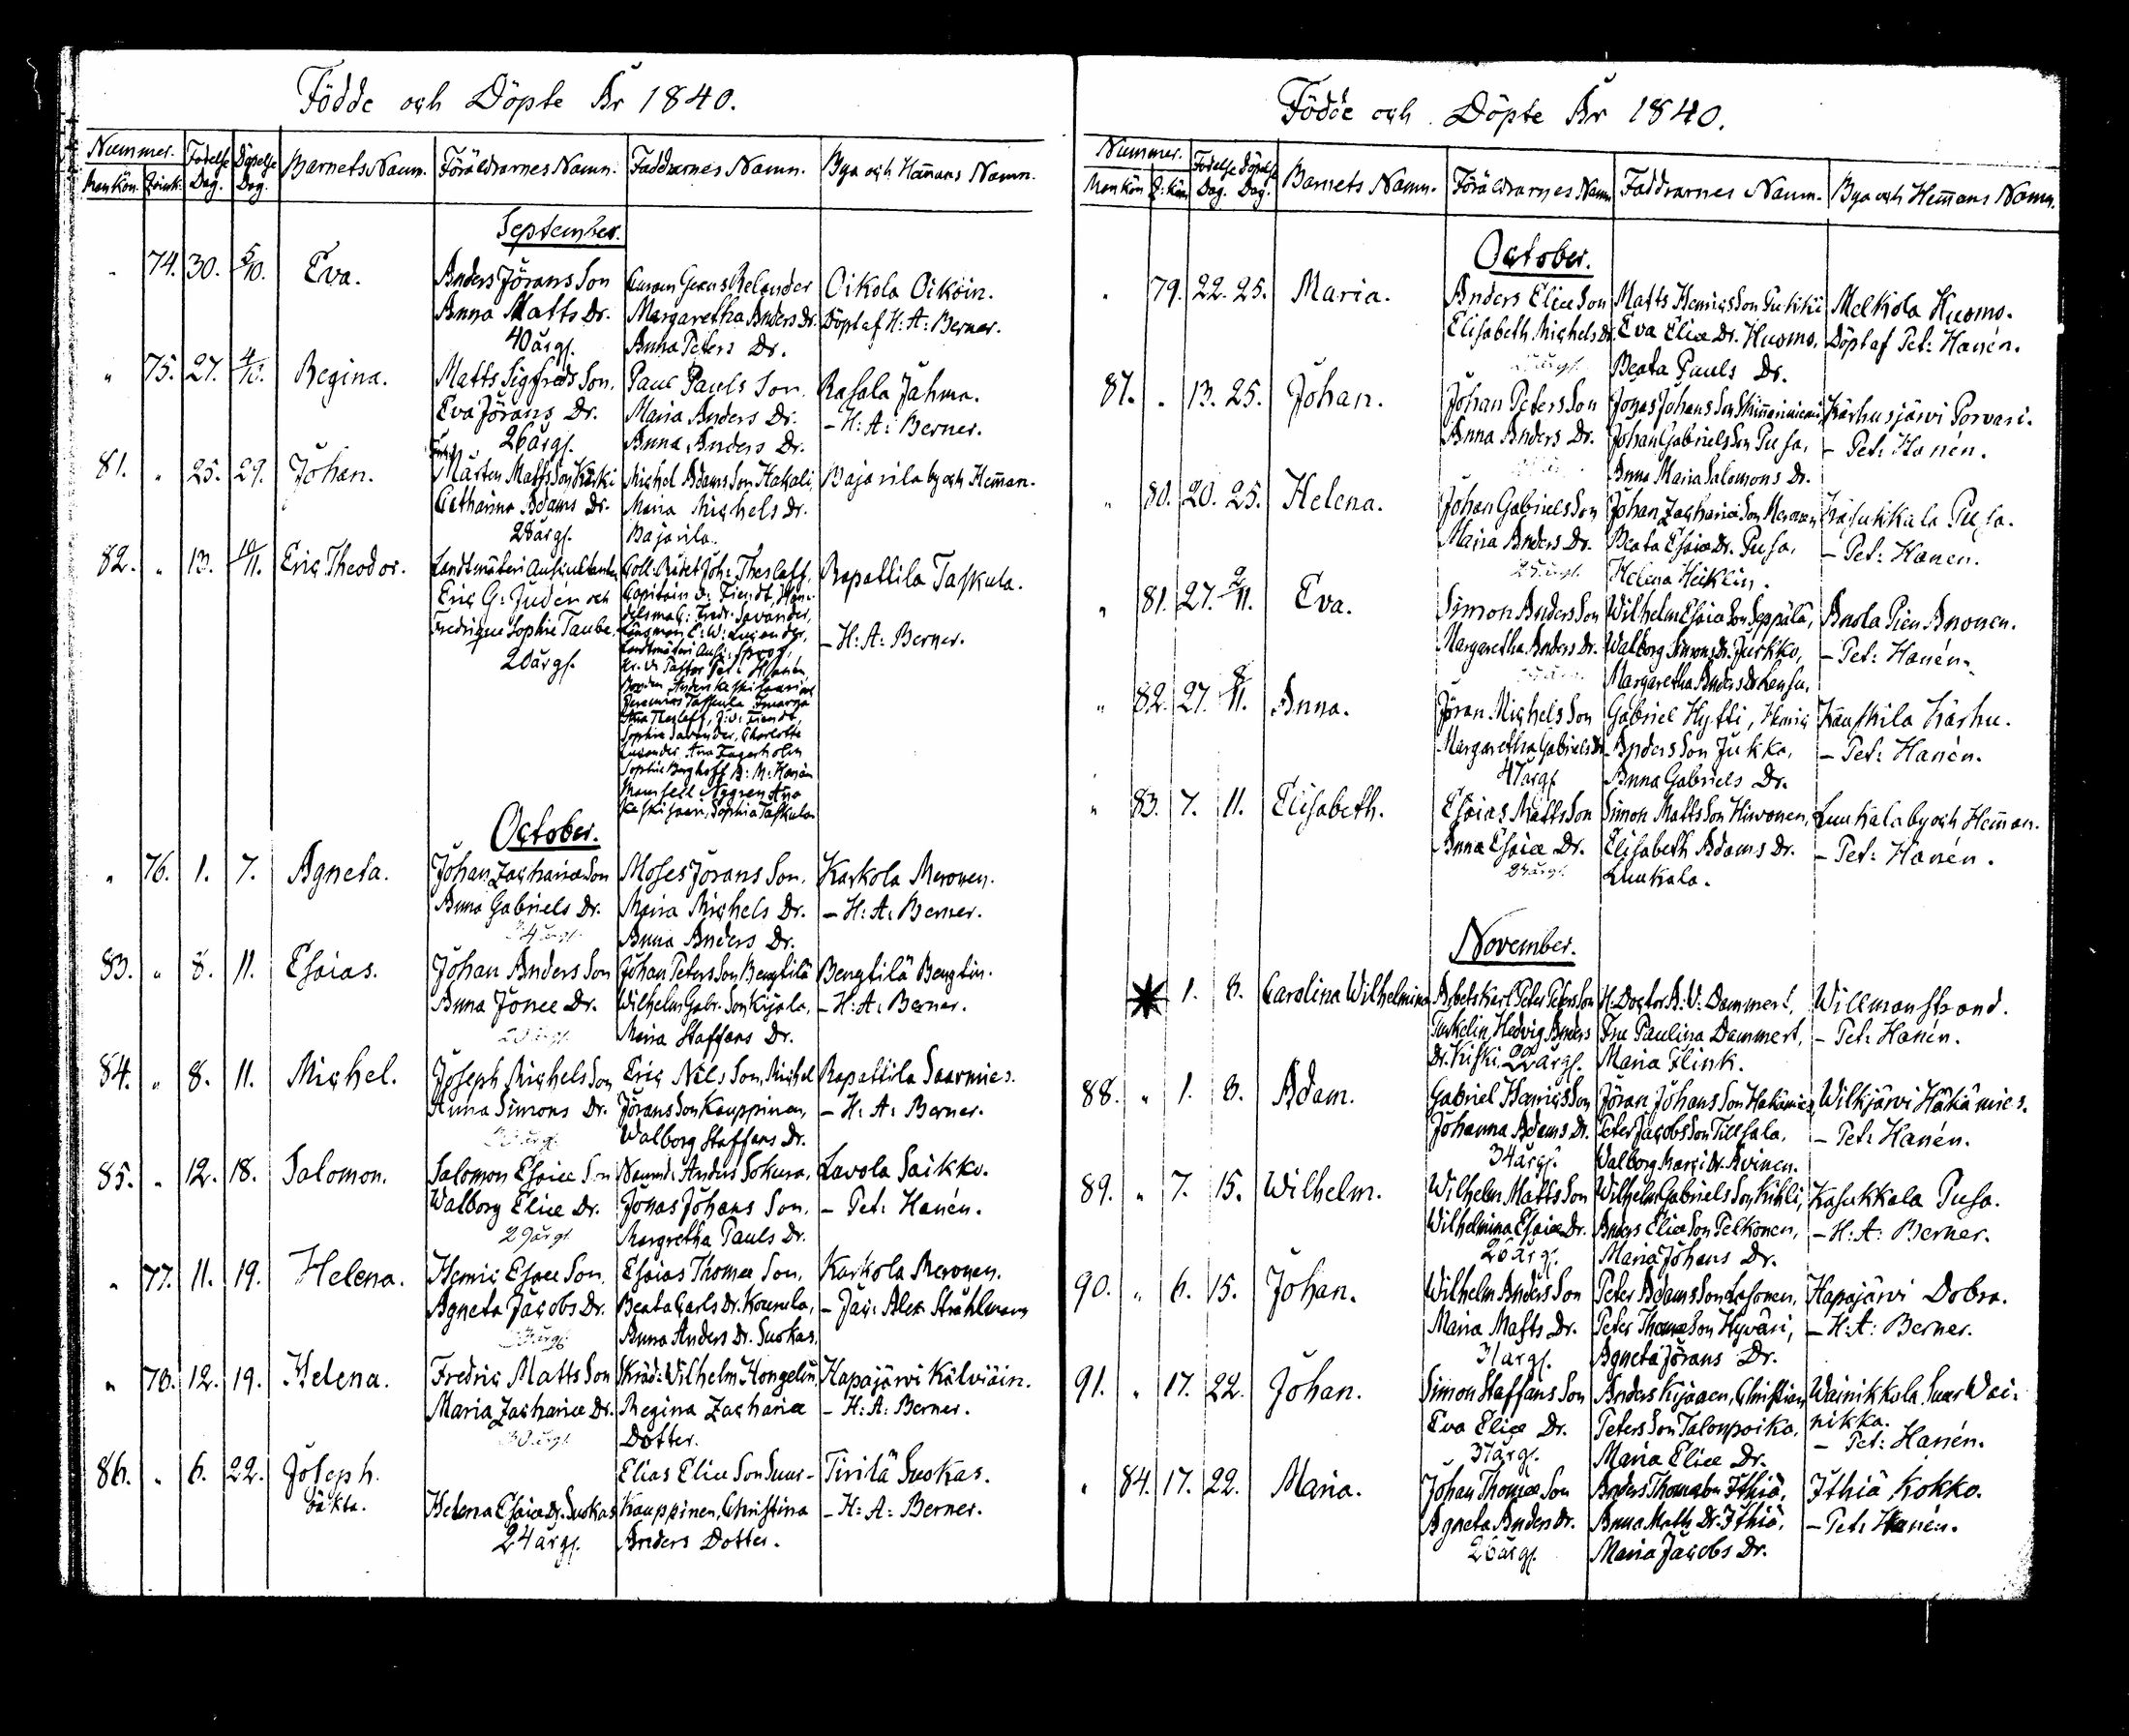 Födde och Döpte År 1840.
Nummer. Födelse Dag. Döpelse Dag. Barnets Namn. Föräldrarnes Namn. Faddrarnes Namn. Bya och Hem̄ans Namn.
Mankön. Qvink:
September.
" 74. 30. 5/10. Eva. Anders Jörans Son Relander Oikola Oikoin.
Anna Matts Dr. Margaretha Anders Dr. Döpt af H: A: Berner.
40 årg. Anna Peters Dr.
" 75. 27. 4/10. Regina. Matts Sigfreds Son, Paul Pauls Son, Rasala Jahma.
Eva Jörans Dr. Maria Anders Dr. - H: A: Berner.
26 årg. Anna Anders Dr.
81. " 25. 29. Johan. Mårten Matts Son Koski Michel Adams Son Hakali, Bajarila by och Hem̄an.
Catharina Adams Dr. Maria Michels Dr.
28 årg. Bajarila.
82. " 13. 10/11. Eric Theodor. Landtmäteri Auscultanten Coll: Rådet Joh: Thesleff, Rapattila Taskula.
Eric G: Juden och Capitain v: Fiendt, Han-
delsman: Fredr: Savander,
Fredrique Sophie Taube. Länsman C: W: Lucander, - H: A: Berner.
20 årg. Landtmäteri Ausc:
Kr. V: Pastor Pet: Hanén,
Taskula
Ana Thesleff, J: v: Fiendt,
Sophia Savander, Charlotta
Lucander, Ana Fagerholm
Sophie Berghoff B: M: Hanén
Mamsell Nygren Ana
Sophia Taskula
October.
" 76. 1. 7. Agneta. Johan Zachariæ Son Moses Jörans Son, Karkola Meronen.
Anna Gabriels Dr. Maria Michels Dr. - H: A: Berner.
34 årg. Anna Anders Dr.
83. " 8. 11. Esaias. Johan Anders Son Johan Peters Son Bengtilä Bengtilä Bengtin.
Anna Jonæ Dr. Wilhelm Gabr. Son Kijala, - H: A: Berner.
Maria Staffans Dr.
84. " 8. 11. Michel. Joseph Michels Son Eric Nils Son, Michel Rapattila Saarmies.
Anna Simons Dr. Jörans Son Kauppinen, - H: A: Berner.
Walborg Staffans Dr.
85. " 12. 18. Salomon. Salomon Esaiæ Son Nämnd: Anders Sokura, Lavola Saikko.
Walborg Eliæ Dr. Jonas Johans Son, - Pet: Hanén.
29 årg. Margretha Pauls Dr.
" 77. 11. 19. Helena. Henric Esaiæ Son, Esaias Thomæ Son, Karkola Meronen.
Agneta Jacobs Dr. Beata Carls Dr. Kounola, - Jac: Alex Stråhlman
Anna Anders Dr. Suokas,
" 78. 12. 19. Helena. Fredric Matts Son Skräd: Wilhelm Hongelin, Hapajärvi Kälviäin.
Maria Zachariæ Dr. Regina Zachariæ - H: A: Berner.
30 årg. Dotter.
86. " 6. 22. Joseph. Elias Eliæ Son Suur- Tiviliä Suokas.
oäkta. Helena Esaiæ Dr. Suokas Kauppinen, Christina - H: A: Berner.
24 årg. Anders Dotter.
Födde och Döpte År 1840.
Nummer. Födelse Dag. Döpelse Dag. Barnets Namn. Föräldrarnes Namn Faddrarnes Namn. Bya och Hem̄ans Namn.
Mankön Q: kön
October.
" 79. 22. 25. Maria. Anders Eliæ Son Matts Henrics Son Pukkii Melkola Huomo.
Elisabeth Michels Dr. Eva Eliæ Dr. Huomo, Döpt af Pet: Hanén.
Beata Pauls Dr.
87. " 13. 25. Johan. Johan Peters Son Jonas Johans Son Kärhusjärvi Porvari.
Anna Anders Dr. Johan Gabriels Son Pusa, - Pet: Hanén.
Anna Maria Salomons Dr.
" 80. 20. 25. Helena. Johan Gabriels Son Johan Zachariæ Son Meronen Kasukkala Pusa.
Maria Anders Dr. Beata Esaiæ Dr. Pusa, - Pet: Hanén.
25 årg. Helena Heiklin.
" 81. 27. 2/11. Eva. Simon Anders Son Wilhelm Esaiæ Son Seppälä, Anola Pien Anonen.
Margaretha Anders Dr. Walborg Simons Dr. Jurkko, - Pet: Hanén.
Margaretha Anders Dr. Lensu,
" 82. 27. 8/11. Anna. Jöran Michels Son Gabriel Hytti, Henric Kauskila Kärhu.
Margaretha Gabriels Dr Anders Son Jukka, - Pet: Hanén.
47 årg. Anna Gabriels Dr.
" 83. 7. 11. Elisabeth. Esaias Matts Son Simon Matts Son Hirvonen, Luukala by och Hem̄an.
Anna Esaiæ Dr. Elisabeth Adams Dr. - Pet: Hanén.
Luukala.
November.
* 1. 8. Carolina Wilhelmina Arbets Karl Peter Peters Son H: Doctor A: V: Dammert, Willmanstrand.
Turkelin, Hedvig Anders Fru Paulina Dammert, - Pet: Hanén.
Dr. Kiski, 22 årg. Maria Flink.
88. " 1. 8. Adam. Gabriel Henrics Son Jöran Johans Son Hakämies, Wilkjärvi Häkämies.
Johanna Adams Dr. Peter Jacobs Son Tillsala, - Pet: Hanén.
34 årg. Walborg Marci Dr. Avinen.
89. " 7. 15. Wilhelm. Wilhelm Matts Son Wilhelm Gabriels Son Kikli, Kasukkala Pusa.
Wilhelmina Esaiæ Dr. Anders Eliæ Son Pelkonen, - H: A: Berner.
26 årg. Maria Johans Dr.
90. " 6. 15. Johan. Wilhelm Anders Son Peter Adams Son Lasonen, Hapajärvi Dobra.
Maria Matts Dr. Peter Thomæ Son Hyväri, - H: A: Berner.
31 årg. Agneta Jörans Dr.
91. " 17. 22. Johan. Simon Staffans Son Anders Kijanen, Christian Wainikkala Suur Wai-
Eva Eliæ Dr. Peters Son Talonpoika, nikka.
37 årg. Maria Eliæ Dr. - Pet: Hanén.
" 84. 17. 22. Maria. Johan Thomæ Son Anders Thomæ Son Ithiä, Ithiä Kokko.
Agneta Anders Dr. Anna Matts Dr. Ithiä, - Pet: Hanén.
26 årg. Maria Jacobs Dr.